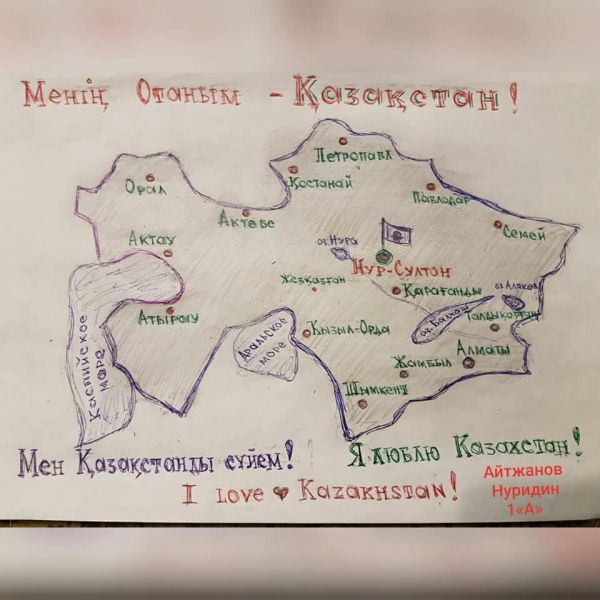 Менің Отаным - Қазақстан!
Петропавл
Орал
Қостанай
Павлодар
Актөбе
Семей
оз.Нура
Актау
Нур-Султон
Жезқазған
Қарағанды
оз.Алакол
Атырау
оз. Балхаш
Талдықорған
Каспийское море
Аральское
море
Кызыл-Орда
Алматы
Жамбыл
Шымкент
Мен Қазақстанды сүйем!
Я люблю Казахстан!
I love Kazakhstan!
Айтжанов
Нуридин
1«А»